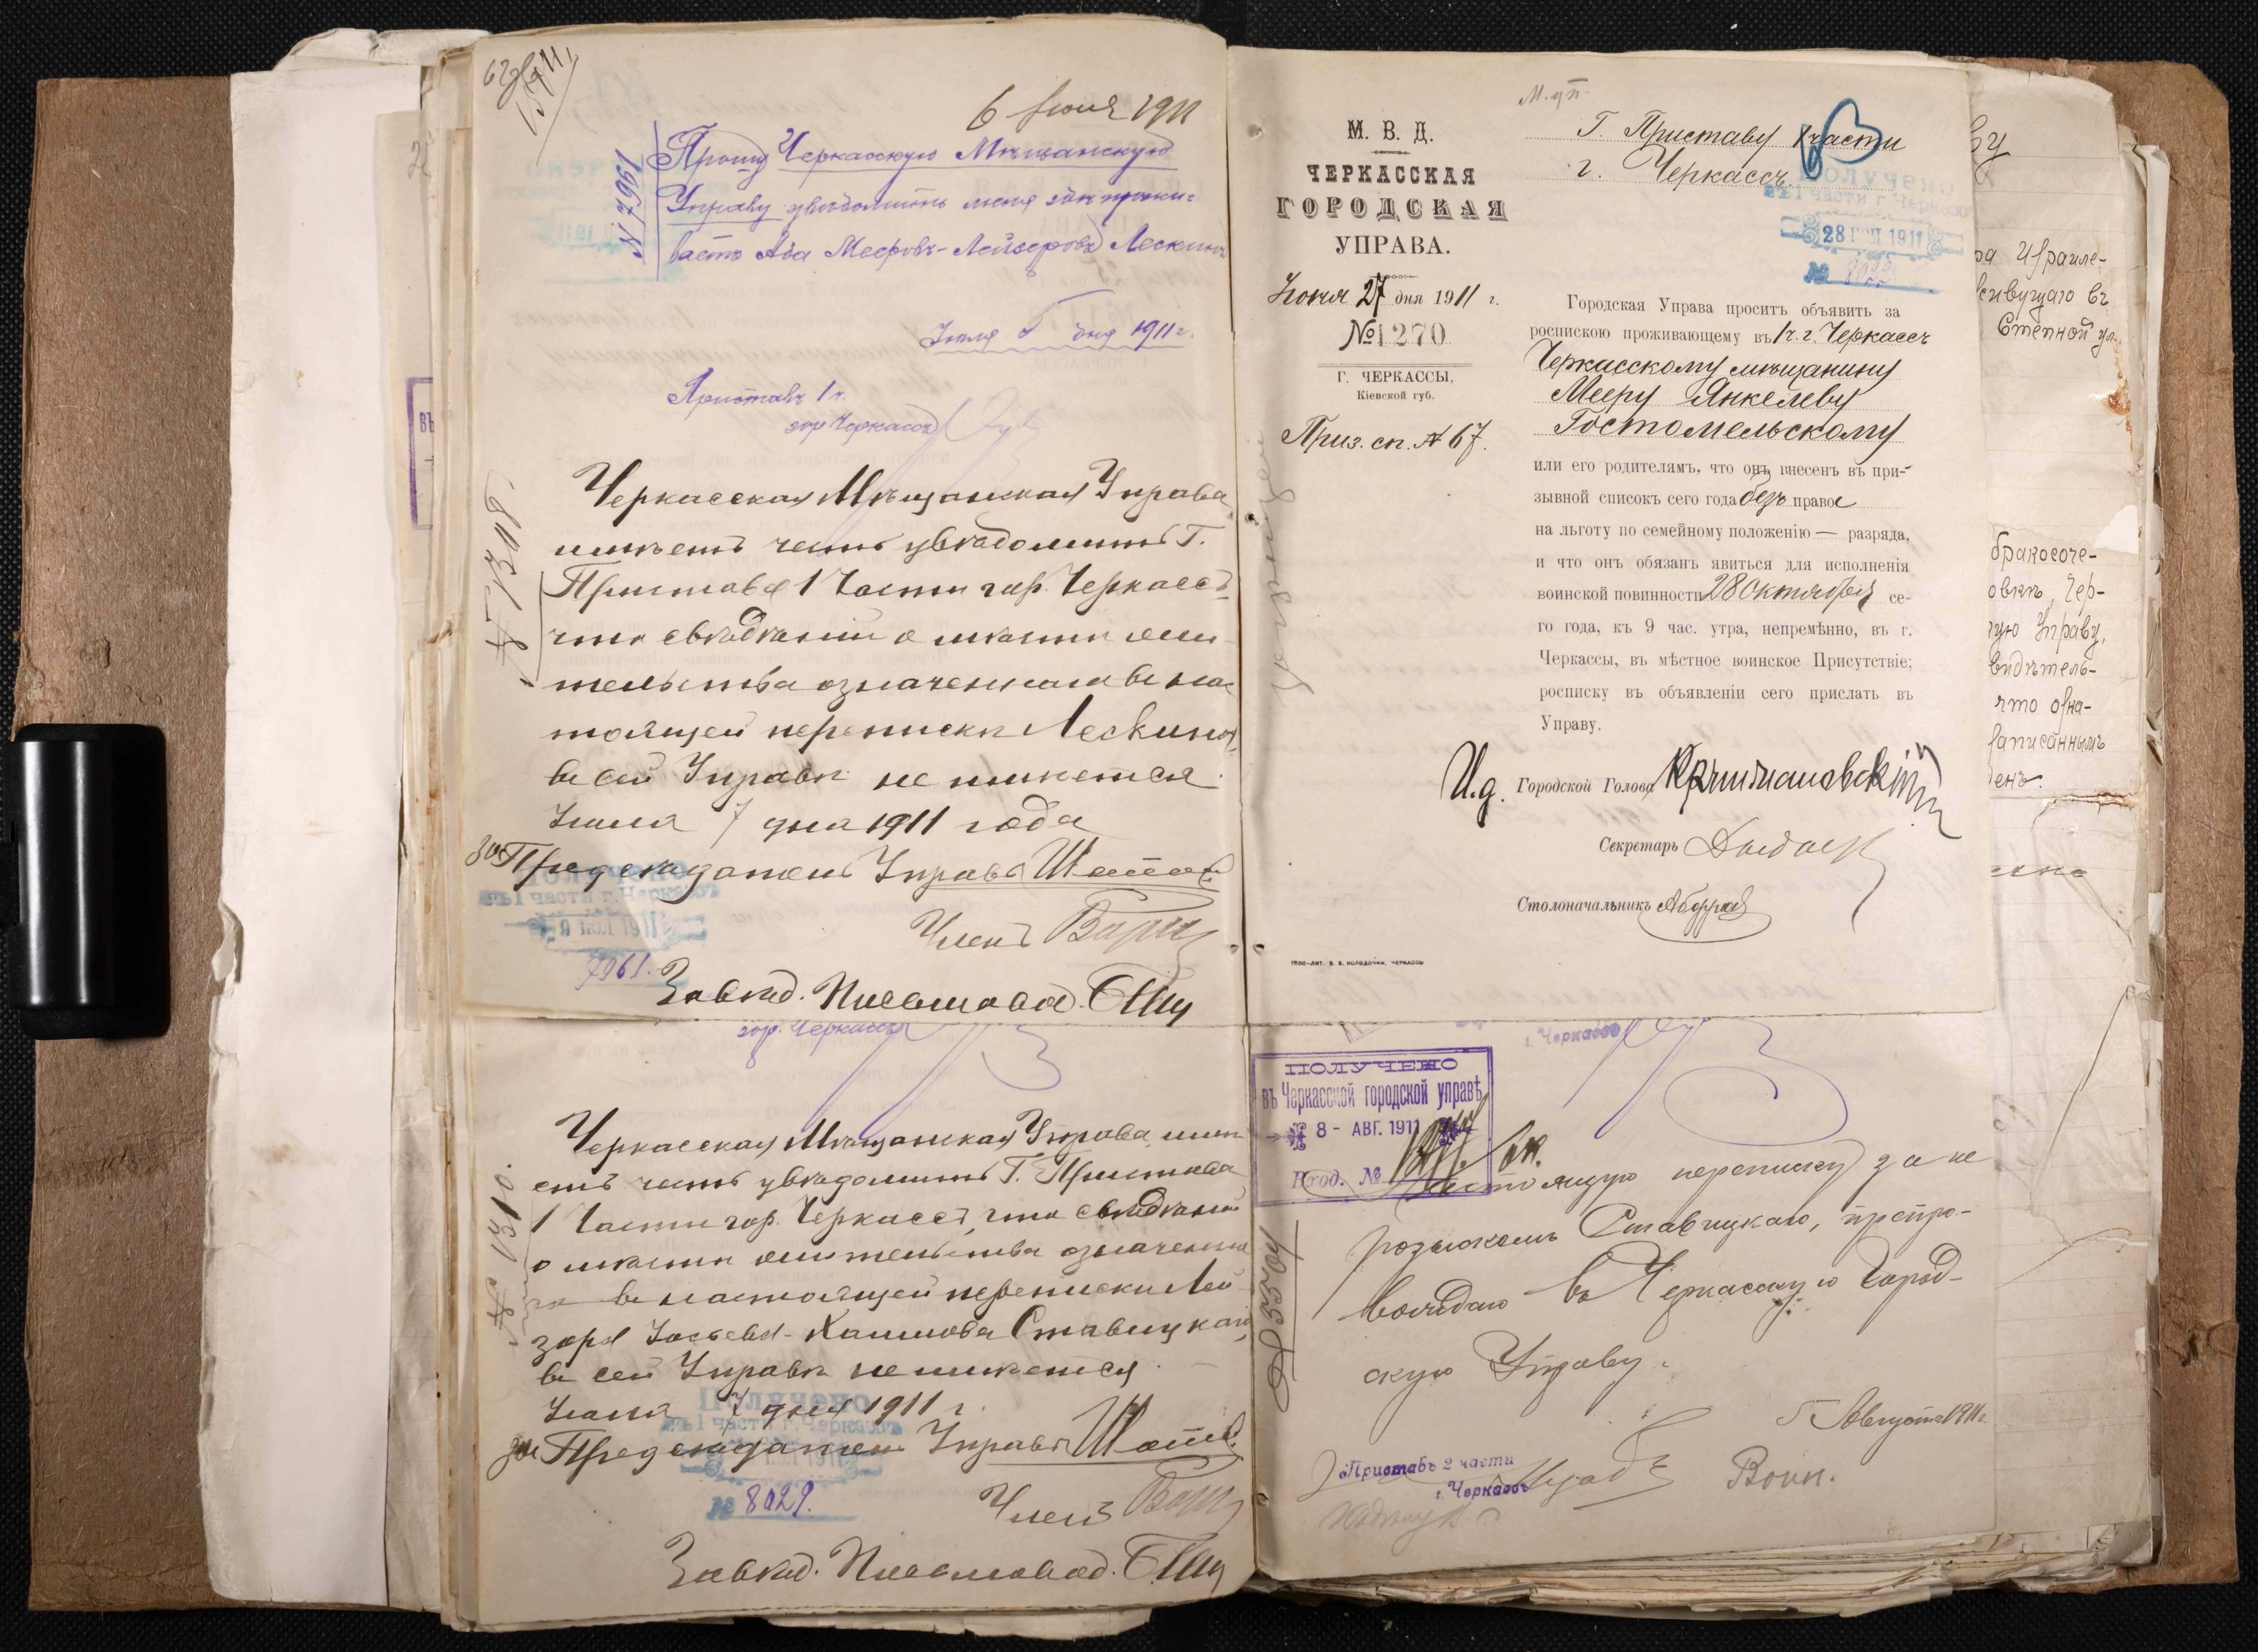 6 Іюля 1911
№ 7961
Прошу Черкасскую Мѣщанскую
Управу увѣдомить меня гдѣ прожи-
ваетъ Аба Мееровъ-Лейзеровъ Лескинъ
Іюля 5 дня 1911 г.
Приставъ 1 ч.
гор. Черкассъ
№ 1308.
Черкасская Мѣщанская Управа
имѣетъ честь увѣдомить Г.
Пристава 1 Части гор. Черкассъ
что свѣдѣній о мѣстѣ жи-
тельства означеннаго въ нас
тоящей перепискѣ Лескина,
въ сей Управѣ не имѣется.
Іюля 7 дня 1911 года
за Предсѣдателя Управы
Членъ
7961.
Завѣд. Письмовод.
гор. Черкассъ
№ 1310.
Черкасская Мѣщанская Управа имѣ
етъ честь увѣдомить Г. Пристава
1 Части гор. Черкассъ, что свѣдѣній
о мѣстѣ жительства означенна
го въ настоящей перепискѣ Лей
зора Іосьева-Хаимова Ставицкаго,
въ сей Управѣ не имѣется.
Іюля 7 дня 1911 г.
за Предсѣдателя Управы
Получено
въ 1 части г. Черкассъ
№ 8029.
Членъ
Завѣд. Письмовод.
М. В. Д.
ЧЕРКАССКАЯ
ГОРОДСКАЯ
УПРАВА.
Іюня 27 дня 1911 г.
№ 1270
Г. ЧЕРКАССЫ,
Кіевской губ.
Приз. сп. № 67.
Г. Приставу 1 части
г. Черкассъ
Получено
въ 1 части г. Черкассъ
28 1911
№ 8029
Городская Управа проситъ объявить за
роспискою проживающему въ 1 ч. г. Черкассъ
Черкасскому мѣщанину
Мееру Янкелеву
Гостомельскому
или его родителямъ, что онъ внесенъ въ при-
зывной списокъ сего года безъ права
на льготу по семейному положенію — разряда,
и что онъ обязанъ явиться для исполненія
воинской повинности 28 Октября се-
го года, къ 9 час. утра, непремѣнно, въ г.
Черкассы, въ мѣстное воинское Присутствіе;
росписку въ объявленіи сего прислать въ
Управу.
И.д. Городской Голова
Секретарь
Столоначальникъ
г. Черкассъ
ПОЛУЧЕНО
въ Черкасской городской управѣ
8 - АВГ. 1911
Вход. №
№ 5504
Настоящую переписку за не
розыскомъ Ставицкаго, препро-
вождаю въ Черкасскую Город-
скую Управу.
5 Августа 1911 г.
Приставъ 2 части
г. Черкассъ
ра Израиле-
Степной ул.
бракосоче-
Чер-
Управу,
видѣтель-
что озна-
записаннымъ